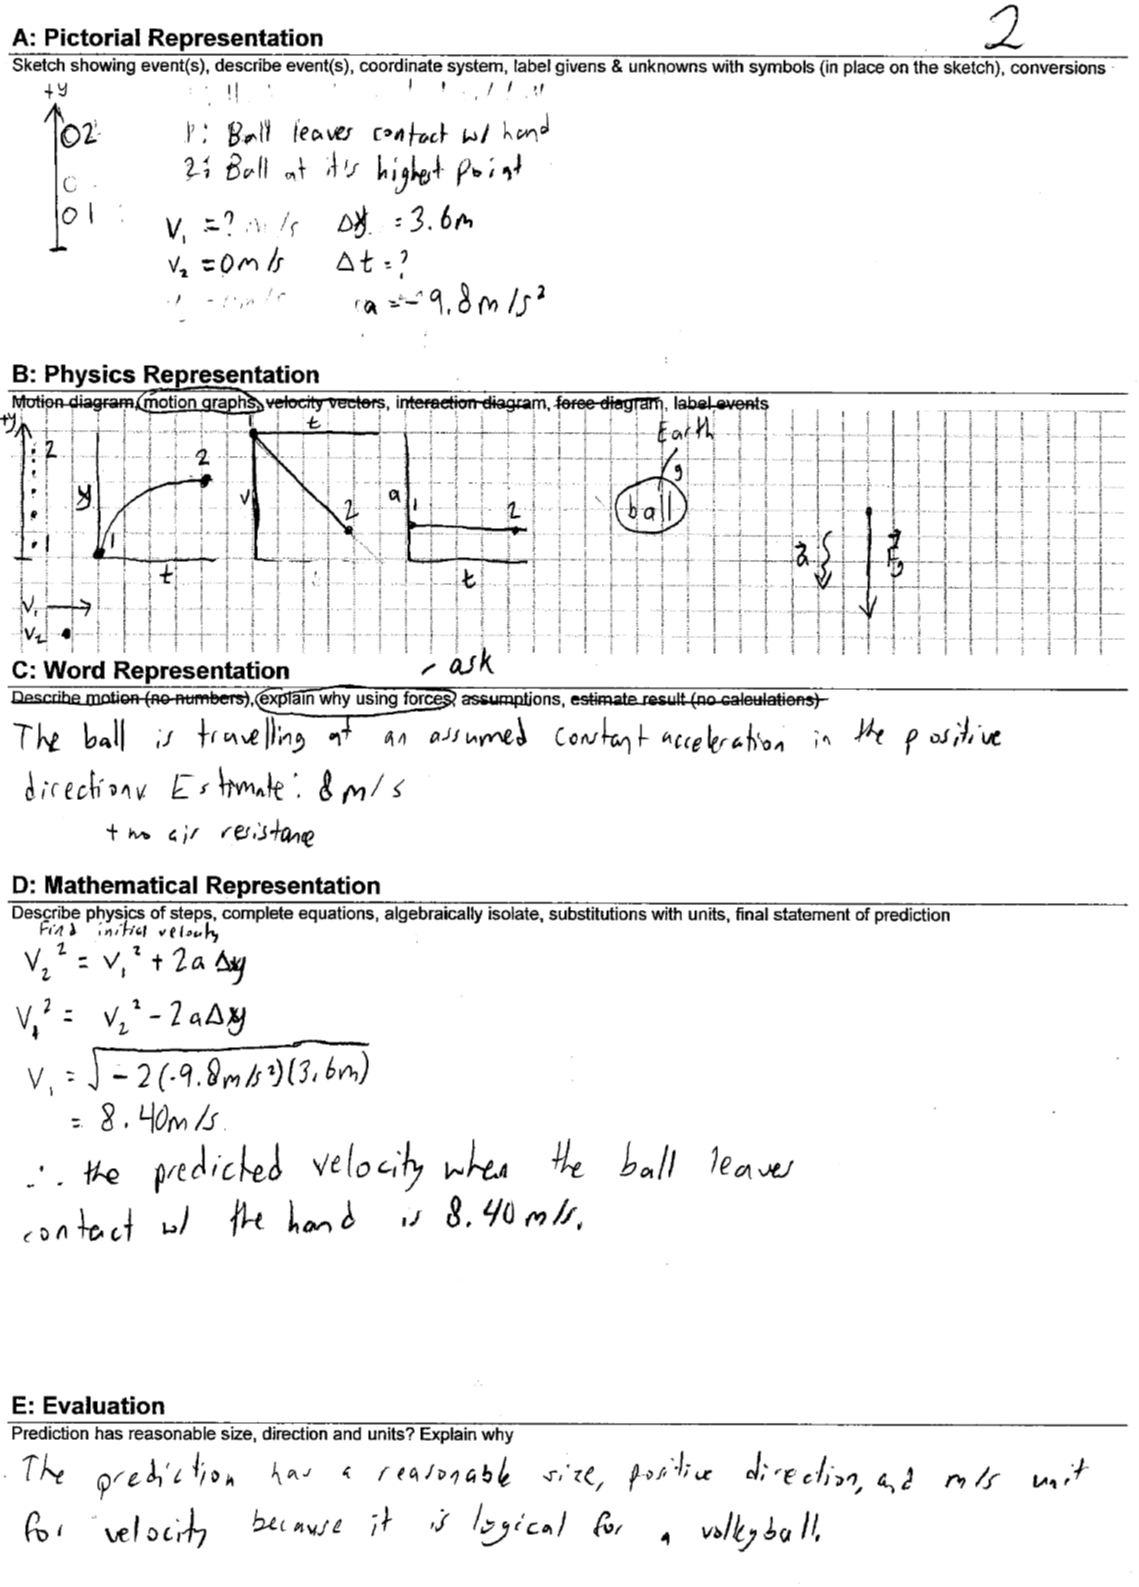 2
A: Pictorial Representation
Sketch showing event(s), describe event(s), coordinate system, label givens & unknowns with symbols (in place on the sketch), conversions
+y
02
01
1: Ball leaves contact w/ hand
2: Ball at it's highest point
V₁ = ? m/s Δy = 3.6m
V₂ = 0m/s Δt = ?
a = -9.8m/s²
B: Physics Representation
Motion diagram, motion graphs, velocity vectors, interaction diagram, force diagram, label events
+y
2
1
y
2
1
t
1
t
v
2
a
1
2
t
Earth
g
ball
a
Fg
V₁
V₂
C: Word Representation
- ask
Describe motion (no numbers), explain why using forces, assumptions, estimate result (no calculations)
The ball is travelling at an assumed constant acceleration in the positive
direction. Estimate: 8 m/s
+ no air resistance
D: Mathematical Representation
Describe physics of steps, complete equations, algebraically isolate, substitutions with units, final statement of prediction
Find initial velocity
V₂² = V₁² + 2aΔy
V₁² = V₂² - 2aΔy
V₁ = √-2(-9.8m/s²)(3.6m)
= 8.40m/s
∴ the predicted velocity when the ball leaves
contact w/ the hand is 8.40 m/s.
E: Evaluation
Prediction has reasonable size, direction and units? Explain why
The prediction has a reasonable size, positive direction, and m/s unit
for velocity because it is logical for a volleyball.